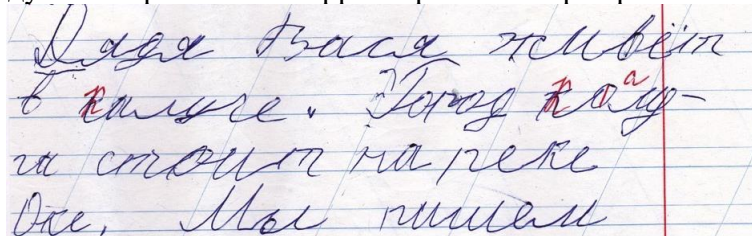 Дядя Вася живёт
в калуге. Город калу-
га стоит на реке
Оке. Мы пишем